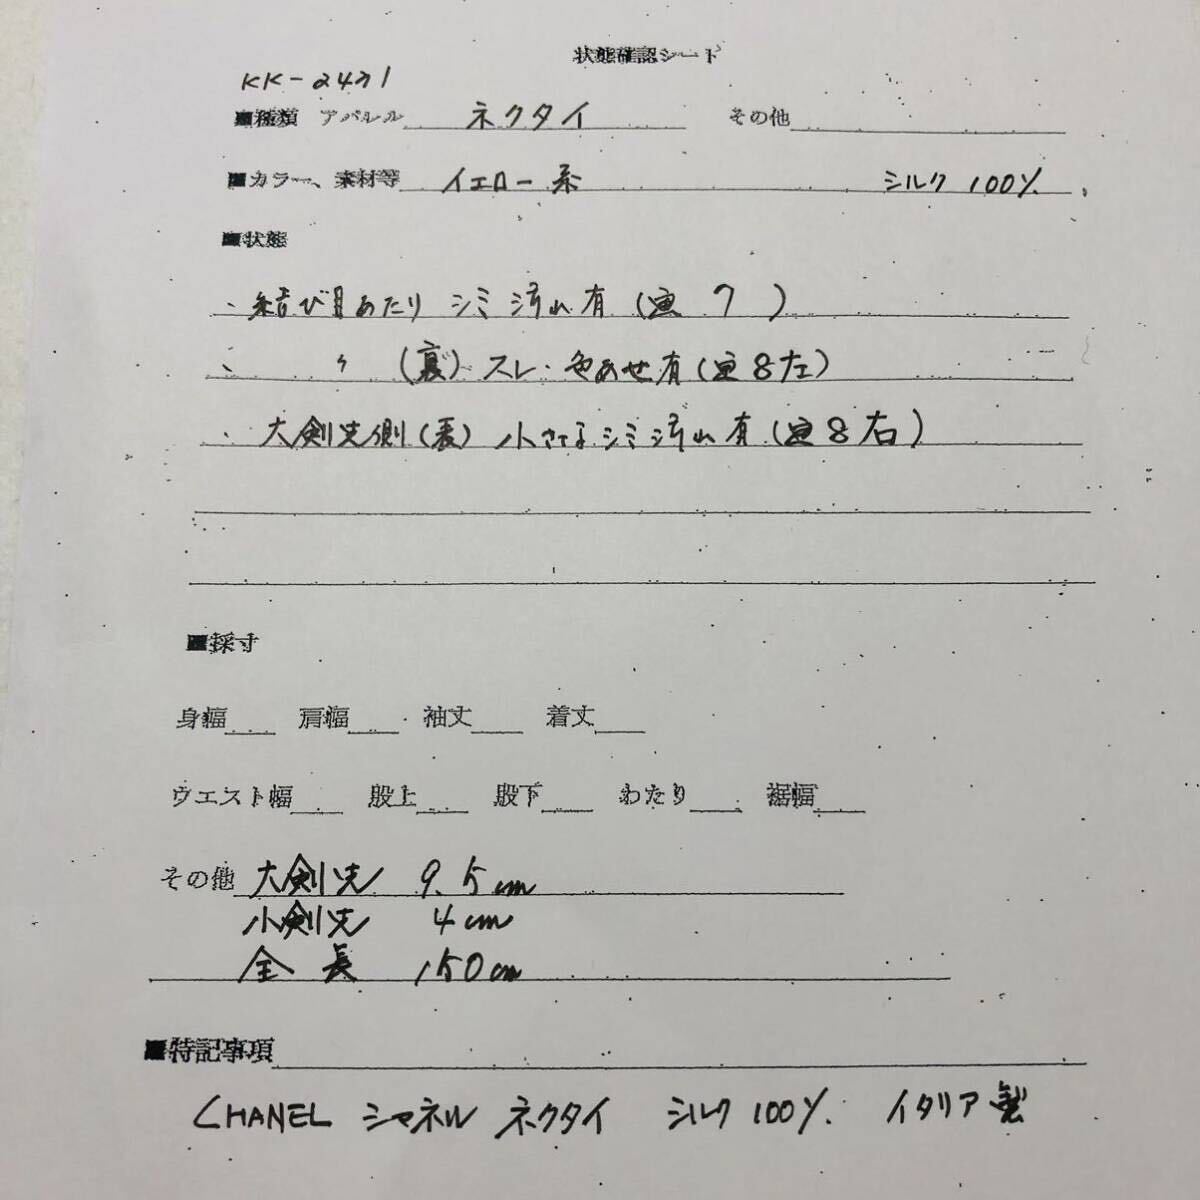 状態確認シート
KK-2431
■種類 アパレル ネクタイ その他
■カラー、素材等 イエロー系 シルク 100%
■状態
・結び目あたり シミ汚れ有(画7)
・〃(裏)スレ・色あせ有(画8左)
・大剣先側(裏)小さなシミ汚れ有(画8右)
■採寸
身幅 肩幅 袖丈 着丈
ウエスト幅 股上 股下 わたり 裾幅
その他 大剣先 9.5cm
小剣先 4cm
全長 150cm
■特記事項
CHANEL シャネル ネクタイ シルク 100% イタリア製